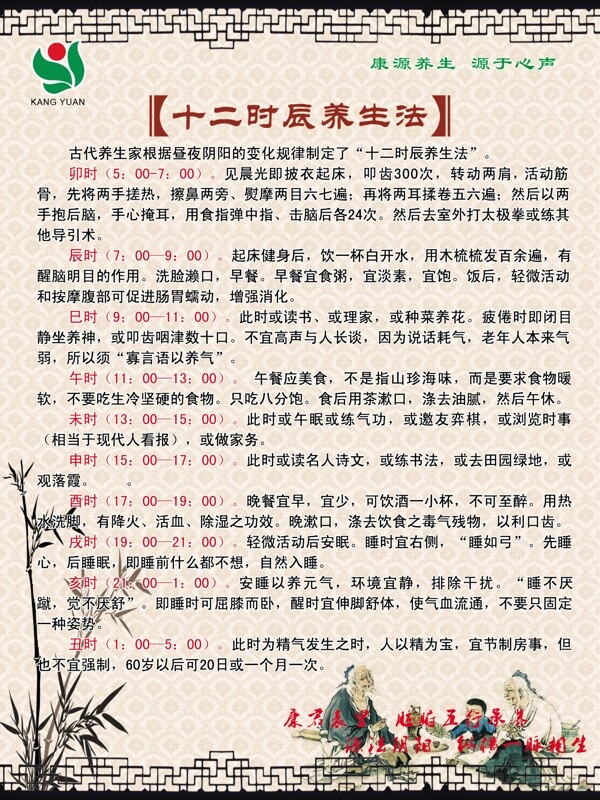 康源养生 源于心声
KANG YUAN
【十二时辰养生法】
古代养生家根据昼夜阴阳的变化规律制定了“十二时辰养生法”。
卯时（5：00-7：00）。见晨光即披衣起床，叩齿300次，转动两肩，活动筋
骨，先将两手搓热，擦鼻两旁、熨摩两目六七遍；再将两耳揉卷五六遍；然后以两
手抱后脑，手心掩耳，用食指弹中指、击脑后各24次。然后去室外打太极拳或练其
他导引术。
辰时（7：00—9：00）。起床健身后，饮一杯白开水，用木梳梳发百余遍，有
醒脑明目的作用。洗脸濑口，早餐。早餐宜食粥，宜淡素，宜饱。饭后，轻微活动
和按摩腹部可促进肠胃蠕动，增强消化。
巳时（9：00—11：00）。此时或读书、或理家，或种菜养花。疲倦时即闭目
静坐养神，或叩齿咽津数十口。不宜高声与人长谈，因为说话耗气，老年人本来气
弱，所以须“寡言语以养气”。
午时（11：00—13：00）。 午餐应美食，不是指山珍海味，而是要求食物暖
软，不要吃生冷坚硬的食物。只吃八分饱。食后用茶漱口，涤去油腻，然后午休。
未时（13：00—15：00）。此时或午眠或练气功，或邀友弈棋，或浏览时事
（相当于现代人看报），或做家务。
申时（15：00—17：00）。此时或读名人诗文，或练书法，或去田园绿地，或
观落霞。 。
酉时（17：00—19：00）。晚餐宜早，宜少，可饮酒一小杯，不可至醉。用热
水洗脚，有降火、活血、除湿之功效。晚漱口，涤去饮食之毒气残物，以利口齿。
戌时（19：00—21：00）。轻微活动后安眠。睡时宜右侧，“睡如弓”。先睡
心，后睡眠，即睡前什么都不想，自然入睡。
亥时（21：00—1：00）。安睡以养元气，环境宜静，排除干扰。“睡不厌
蹴，觉不厌舒”。即睡时可屈膝而卧，醒时宜伸脚舒体，使气血流通，不要只固定
一种姿势。
丑时（1：00—5：00）。此时为精气发生之时，人以精为宝，宜节制房事，但
也不宜强制，60岁以后可20日或一个月一次。
脏腑五行承
阴阳 一脉相生